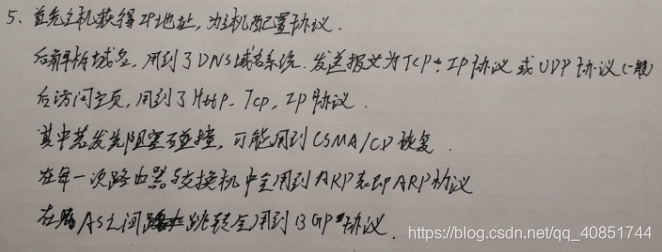 5、首先主机获得IP地址，为主机配置协议．
后解析域名，用到了DNS域名系统．发送报文为TCP+IP协议或UDP协议(一般)
后访问主页，用到了Http．Tcp．IP协议．
其中若发生阻塞碰撞，可能用到CSMA/CD恢复．
在每一次路由器与交换机中会用到ARP和RARP协议
在 AS之间 跳转会用到BGP协议．
https://blog.csdn.net/qq_40851744